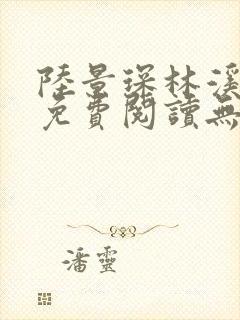 陸景琛林溪
免費閱讀無
潘靈